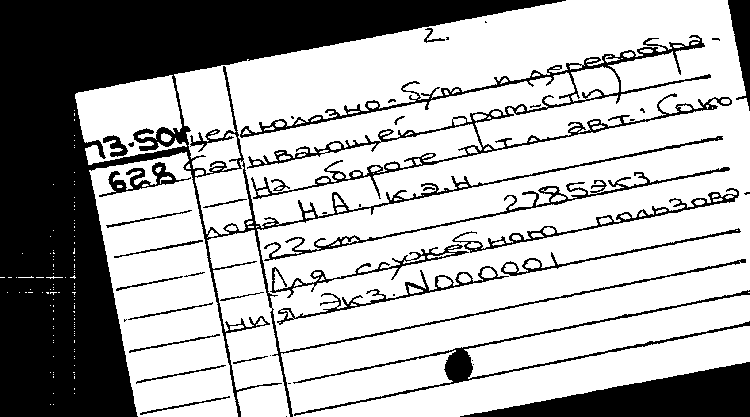 2.
73-50к целлюлозно-бум и деревообра-
628 батывающей пром-сти)
На обороте тит.л. авт.: Соко-
лова Н.А., к.э.н.
22 cm. 2785экз.
Для служебного пользова-
ния. Экз. N000001